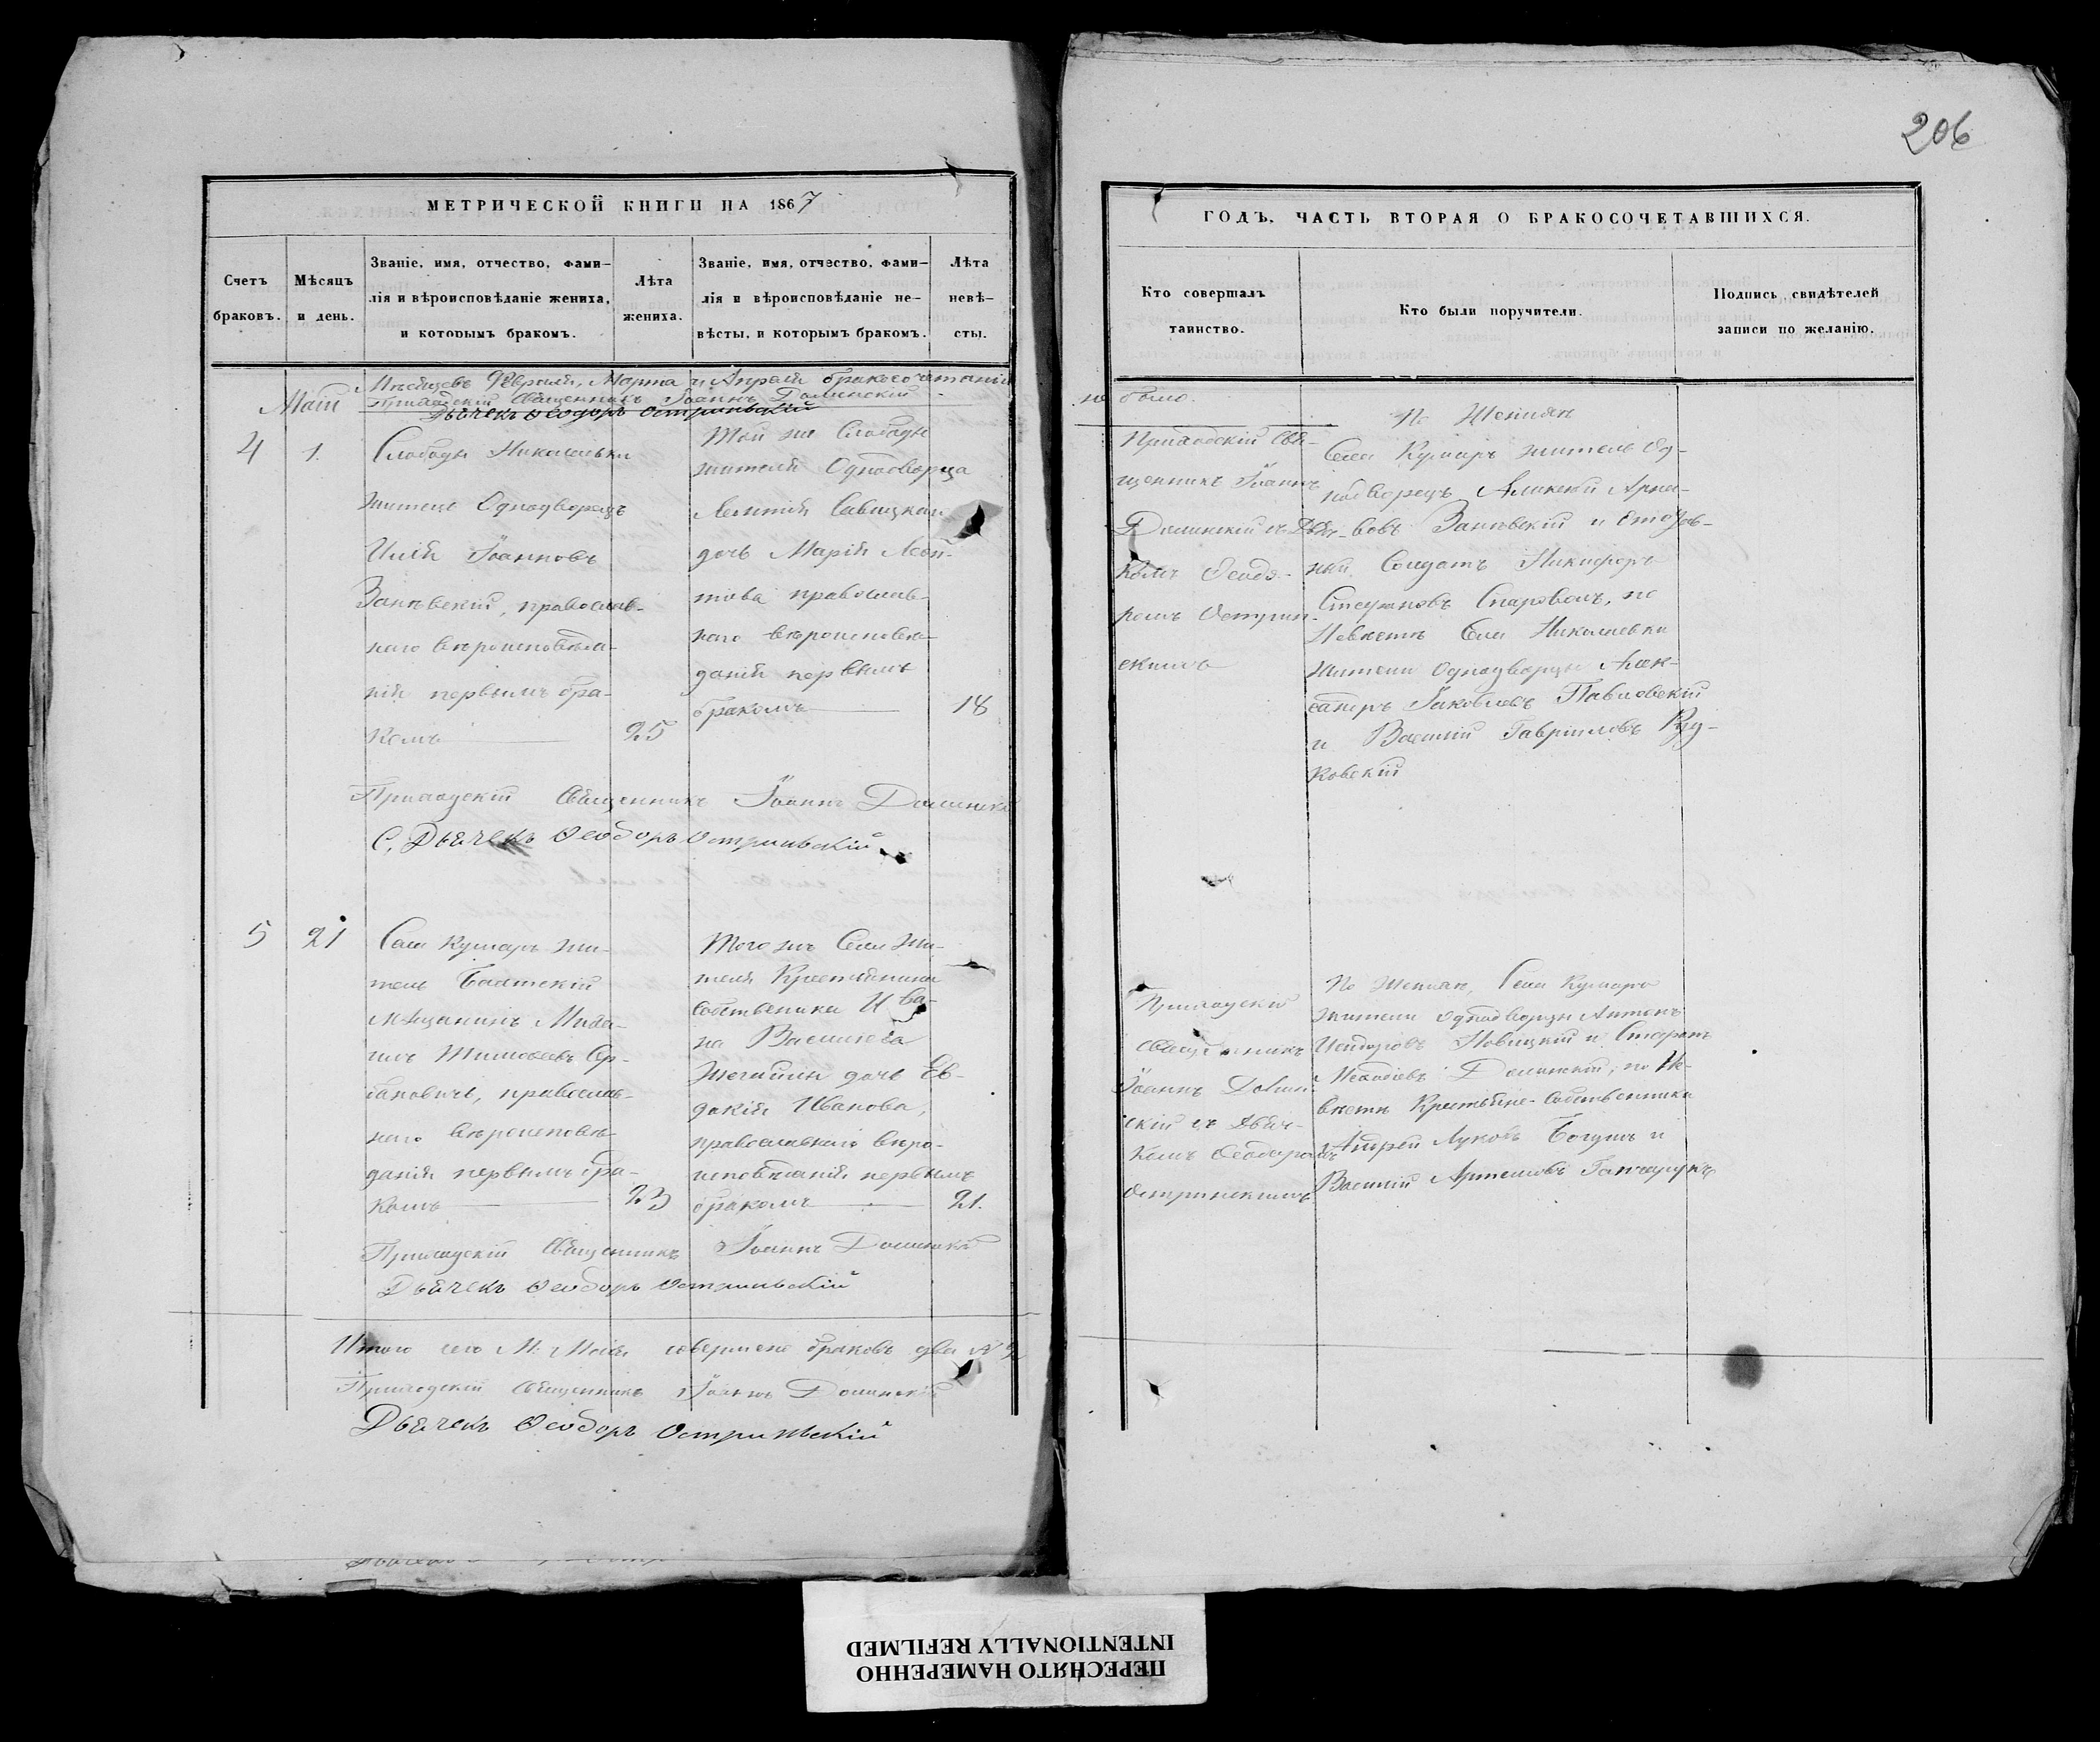 206
МЕТРИЧЕСКОЙ КНИГИ НА 1867
Счетъ
браковъ.
Мѣсяцъ
и день.
Званіе, имя, отчество, фами-
лія и вѣроисповѣданіе жениха,
и которымъ бракомъ.
Лѣта
жениха.
Званіе, имя, отчество, фами-
лія и вѣроисповѣданіе не-
вѣсты, и которымъ бракомъ.
Лѣта
невѣ-
сты.
Мѣсяцевъ Февраля, Марта и Апреля бракосочетанія
Приходскій Священникъ Іоаннъ Долинскій
Дьячекъ Ѳеодоръ Остриньскій
Май
4
1.
Слободы Николаевки
житель Однодворецъ
Илія Іоанновъ
Заньвскій, православ-
наго вѣроисповѣда-
нія первымъ бра-
комъ
25
Той же Слободы
жителя Однодворца
Леонтія Савицкаго
дочь Марія Леон-
тіева православ-
наго вѣроисповѣ-
данія первымъ
бракомъ
18
Приходскій Священникъ Іоаннъ Долинскій
С. Дьячекъ Ѳеодоръ Остриньскій
5
21
Села Кумаръ жи-
тель Балтскій
мѣщанинъ Миха-
илъ Тимоѳеевъ
православ-
наго вѣроисповѣ-
данія первымъ бра-
комъ
23
Того же Села жи-
теля Крестьянина
собственника Ива-
на Васильева
дочь Ев-
докія Иванова,
православнаго вѣро-
исповѣданія первымъ
бракомъ
21.
Приходскій Священникъ Іоаннъ Долинскій
Дьячекъ Ѳеодоръ Остриньскій
Итого сего М. Маія совершено браковъ два № 2
Приходскій Священникъ Іоаннъ Долинскій
Дьячекъ Ѳеодоръ Остриньскій
ГОДЪ. ЧАСТЬ ВТОРАЯ О БРАКОСОЧЕТАВШИХСЯ.
Кто совершалъ
таинство.
Кто были поручители.
Подпись свидѣтелей
записи по желанію.
не было.
Приходскій Свя-
щенникъ Іоаннъ
Долинскій съ Дьяч-
комъ Ѳеодо-
ромъ Острин-
скимъ
По Женихѣ
Села Кумаръ житель Од-
нодворецъ Алексѣй
Заньвскій и
Солдатъ Никифоръ
Стефановъ по
Невѣстѣ Села Николаевки
жители Однодворцы Алек-
сандръ Яковлевъ Павловскій
и Василій Гавріиловъ
ковскій
Приходскій
Священникъ
Іоаннъ Долин-
скій съ Дьяч-
комъ Ѳеодоромъ
Остринскимъ
По Женихѣ, Села Кумаръ
жители однодворцы Антонъ
Исидоровъ Новицкій и
Меѳодіевъ Долинскій; по Не-
вѣстѣ Крестьяне-Собственники
Андрей Луковъ и
Василій Артемовъ Ганчарукъ
ПЕРЕСНЯТО НАМЕРЕННО
INTENTIONALLY REFILMED